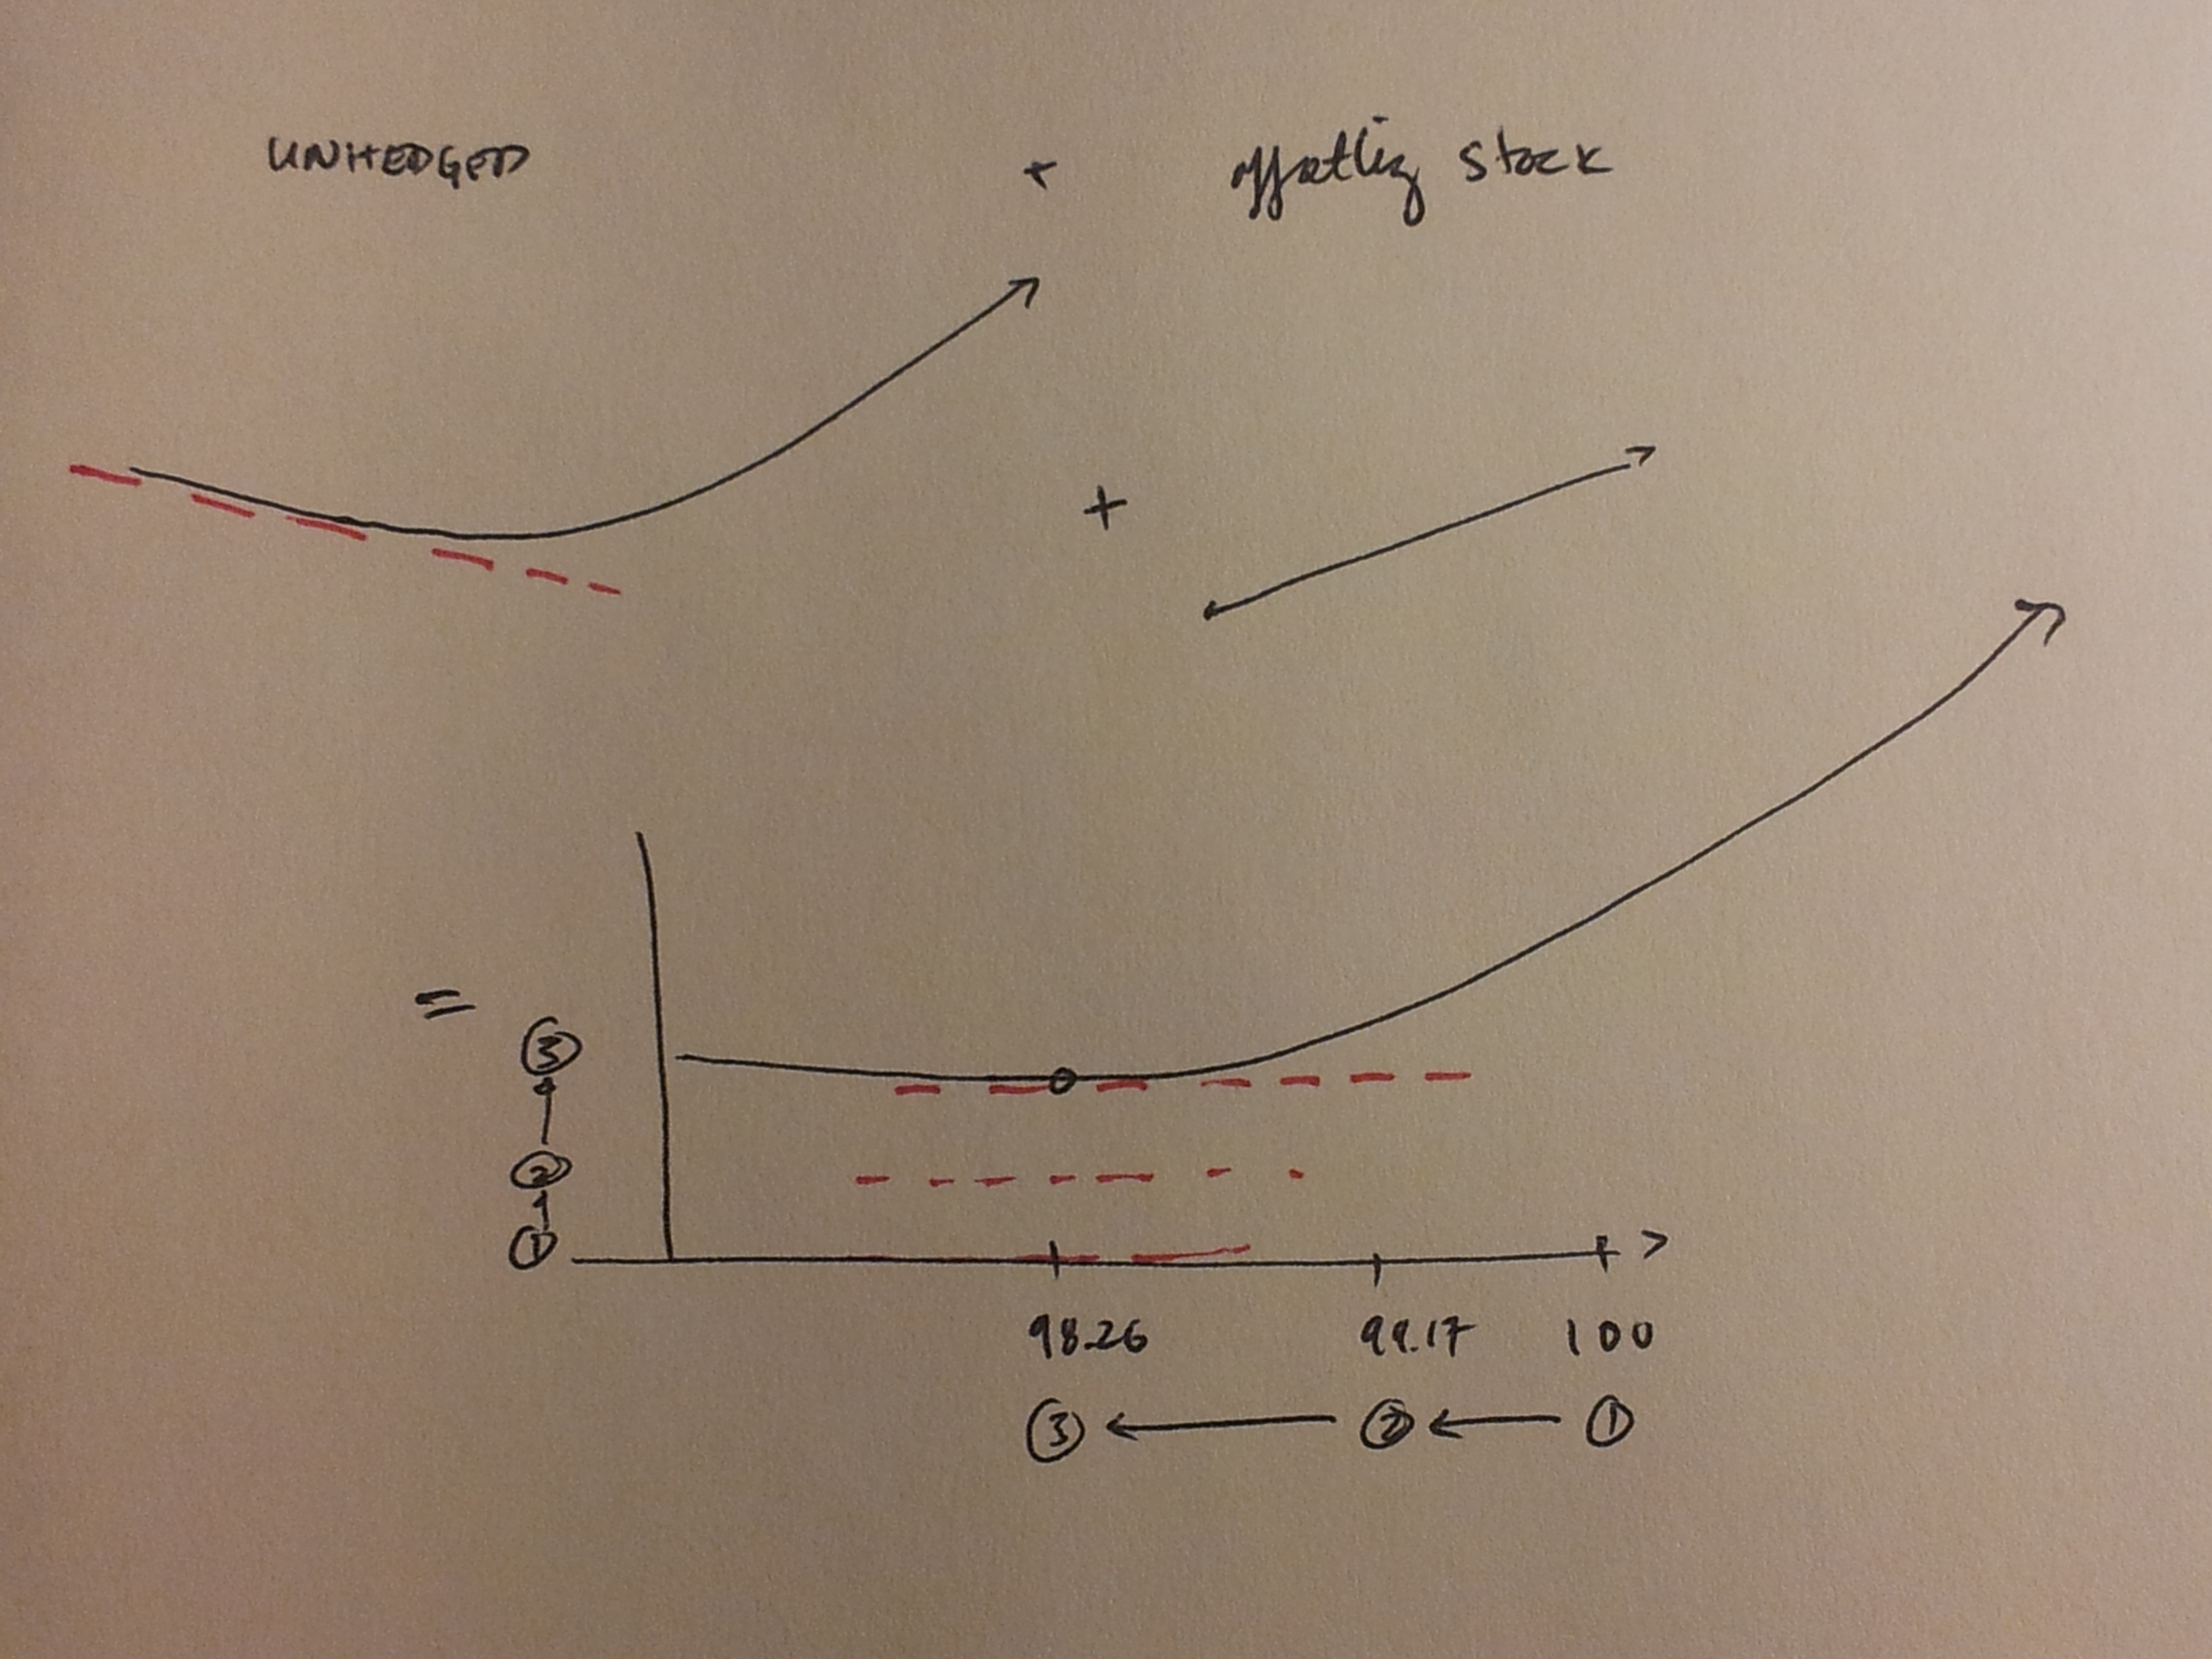 UNHEDGED + offsetting stock
+
=
③
②
①
98.26 99.17 100
③ ← ② ← ①